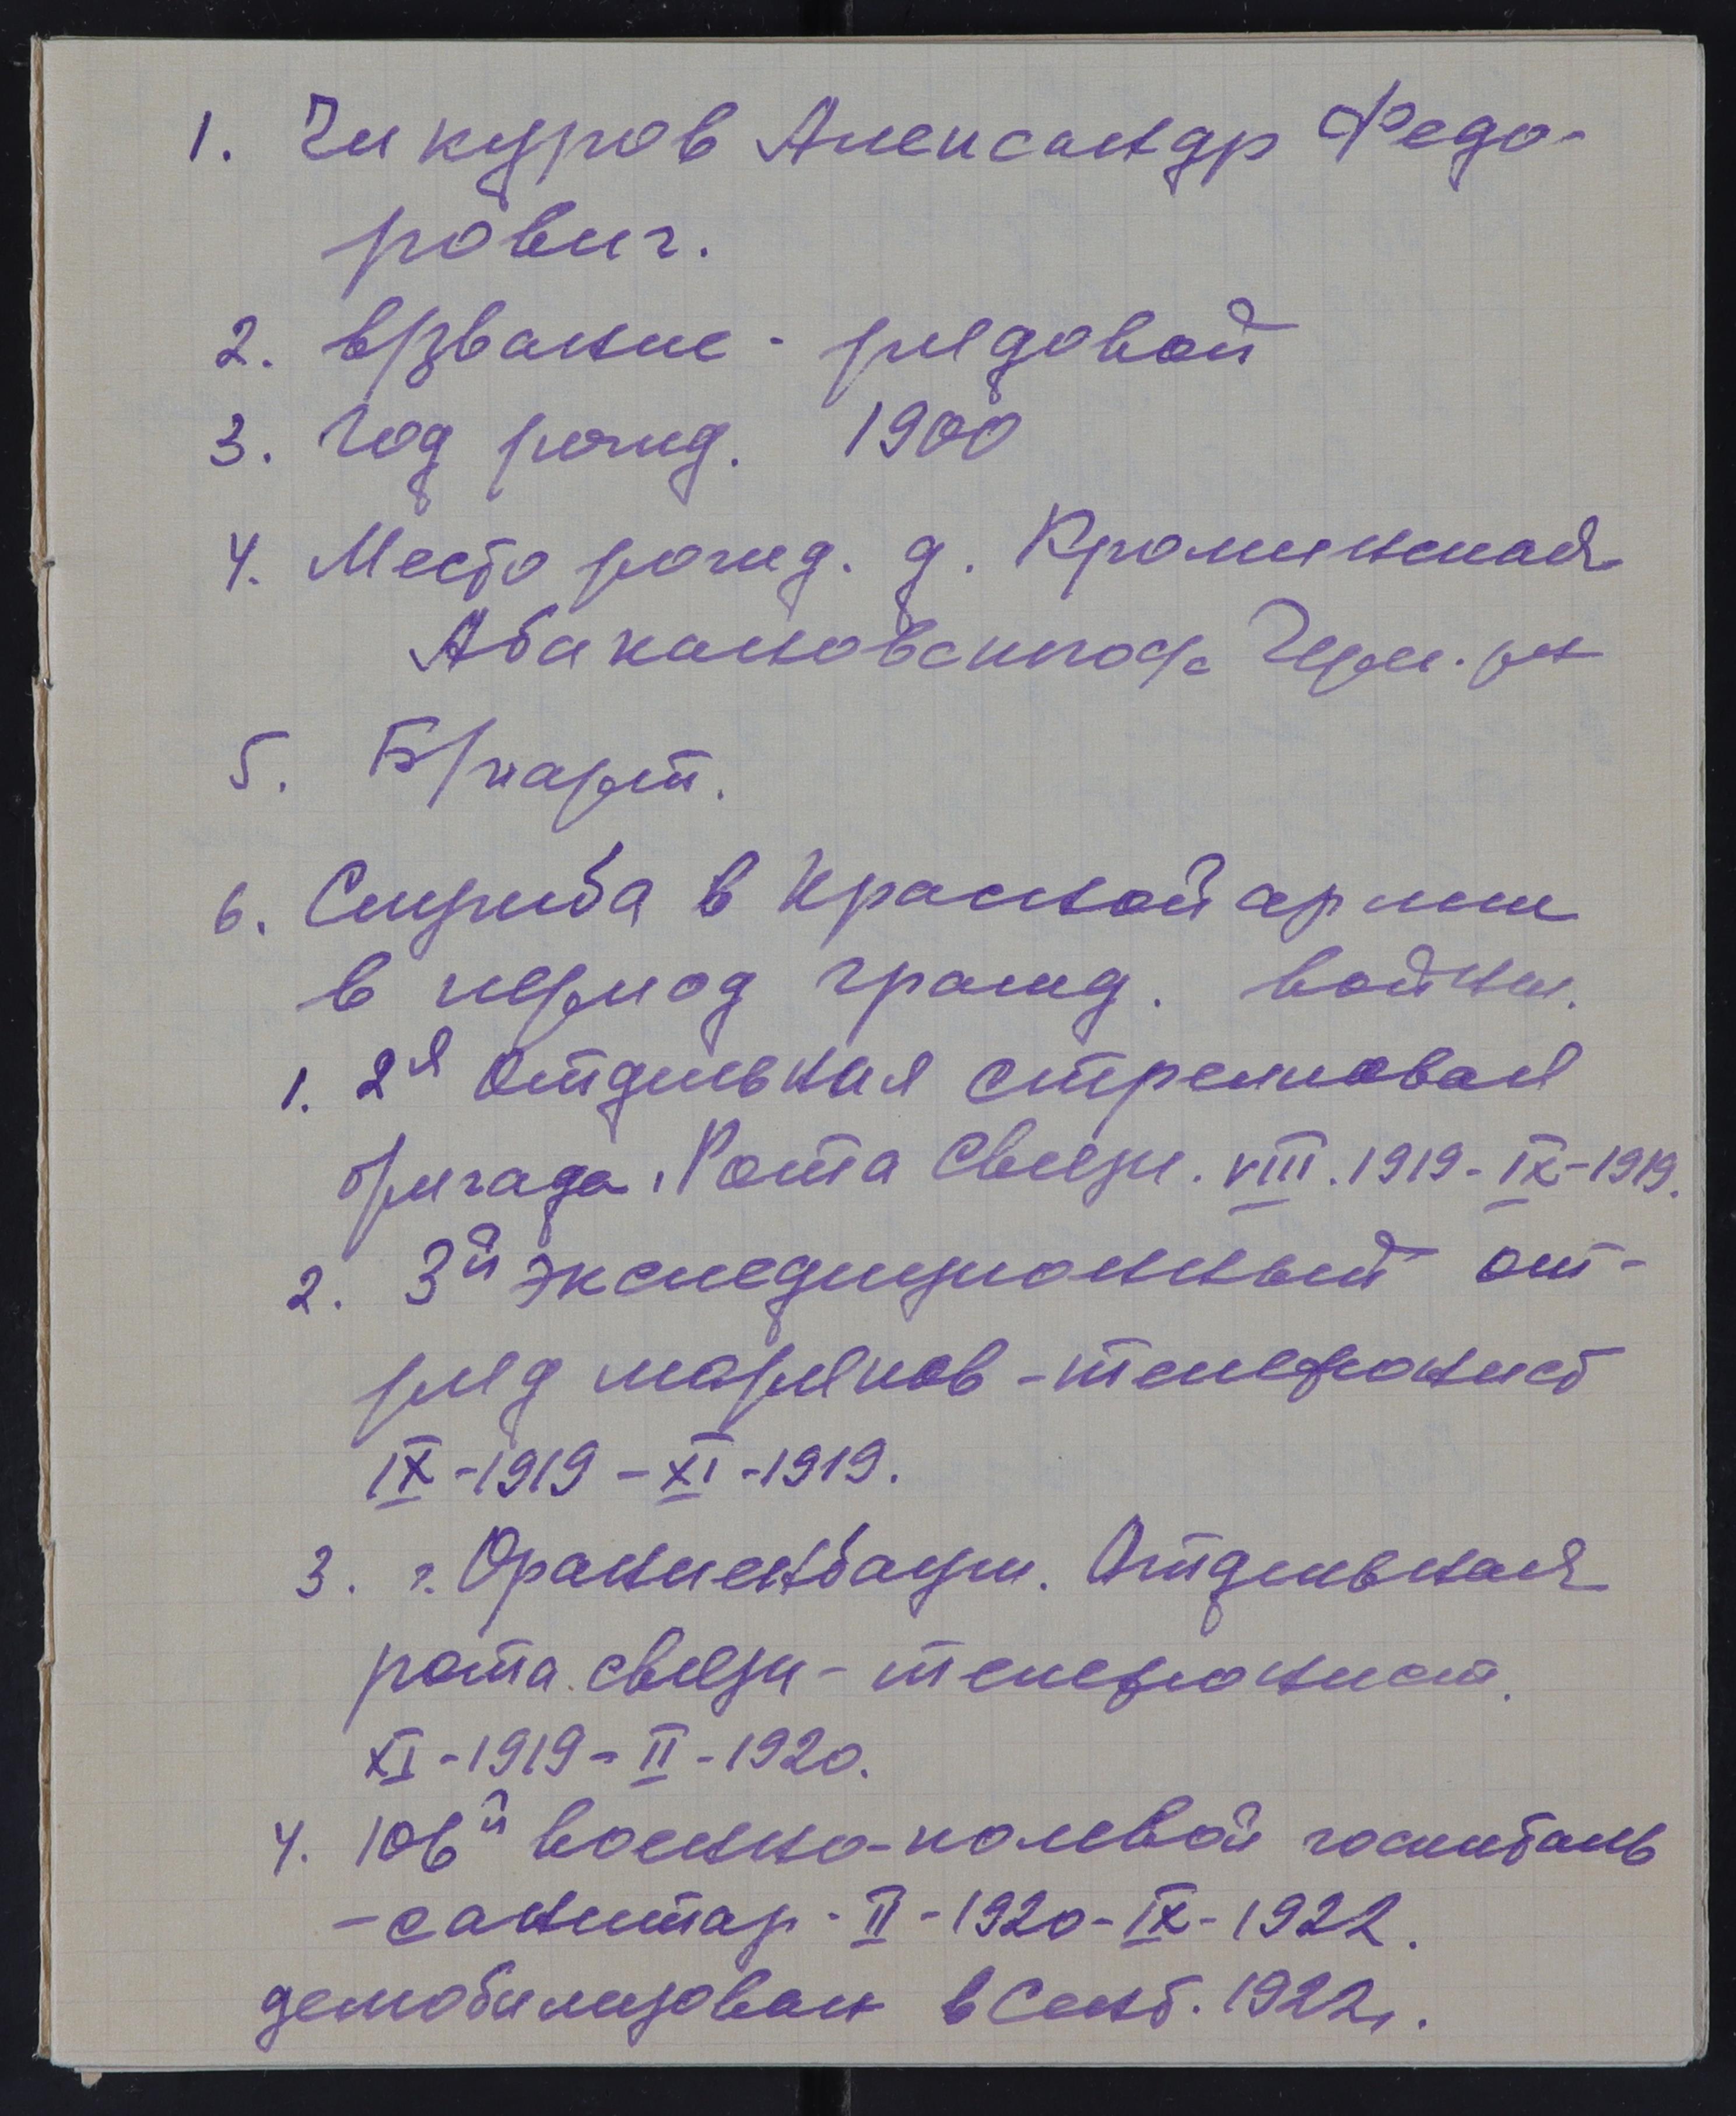 1. Чикуров Александр Федо-
рович.
2. в/звание - рядовой
3. Год рожд. 1900
4. Место рожд. д. Кроминская
Абакановского Чер. рн
5. Б/парт.
6. Служба в Красной армии
в период гражд. войны.
1. 2я Отдельная стрелковая
бригада. Рота Связи. VIII. 1919 - IX - 1919.
2. 3й экспедиционный от-
ряд моряков - телефонист
IX - 1919 - XI - 1919.
3. г. Ораниенбаум. Отдельная
рота связи - телефонист.
XI - 1919 - II - 1920.
4. 106й военно-полевой госпиталь
- санитар - II - 1920 - IX - 1922.
демобилизован в Сент. 1922 г.